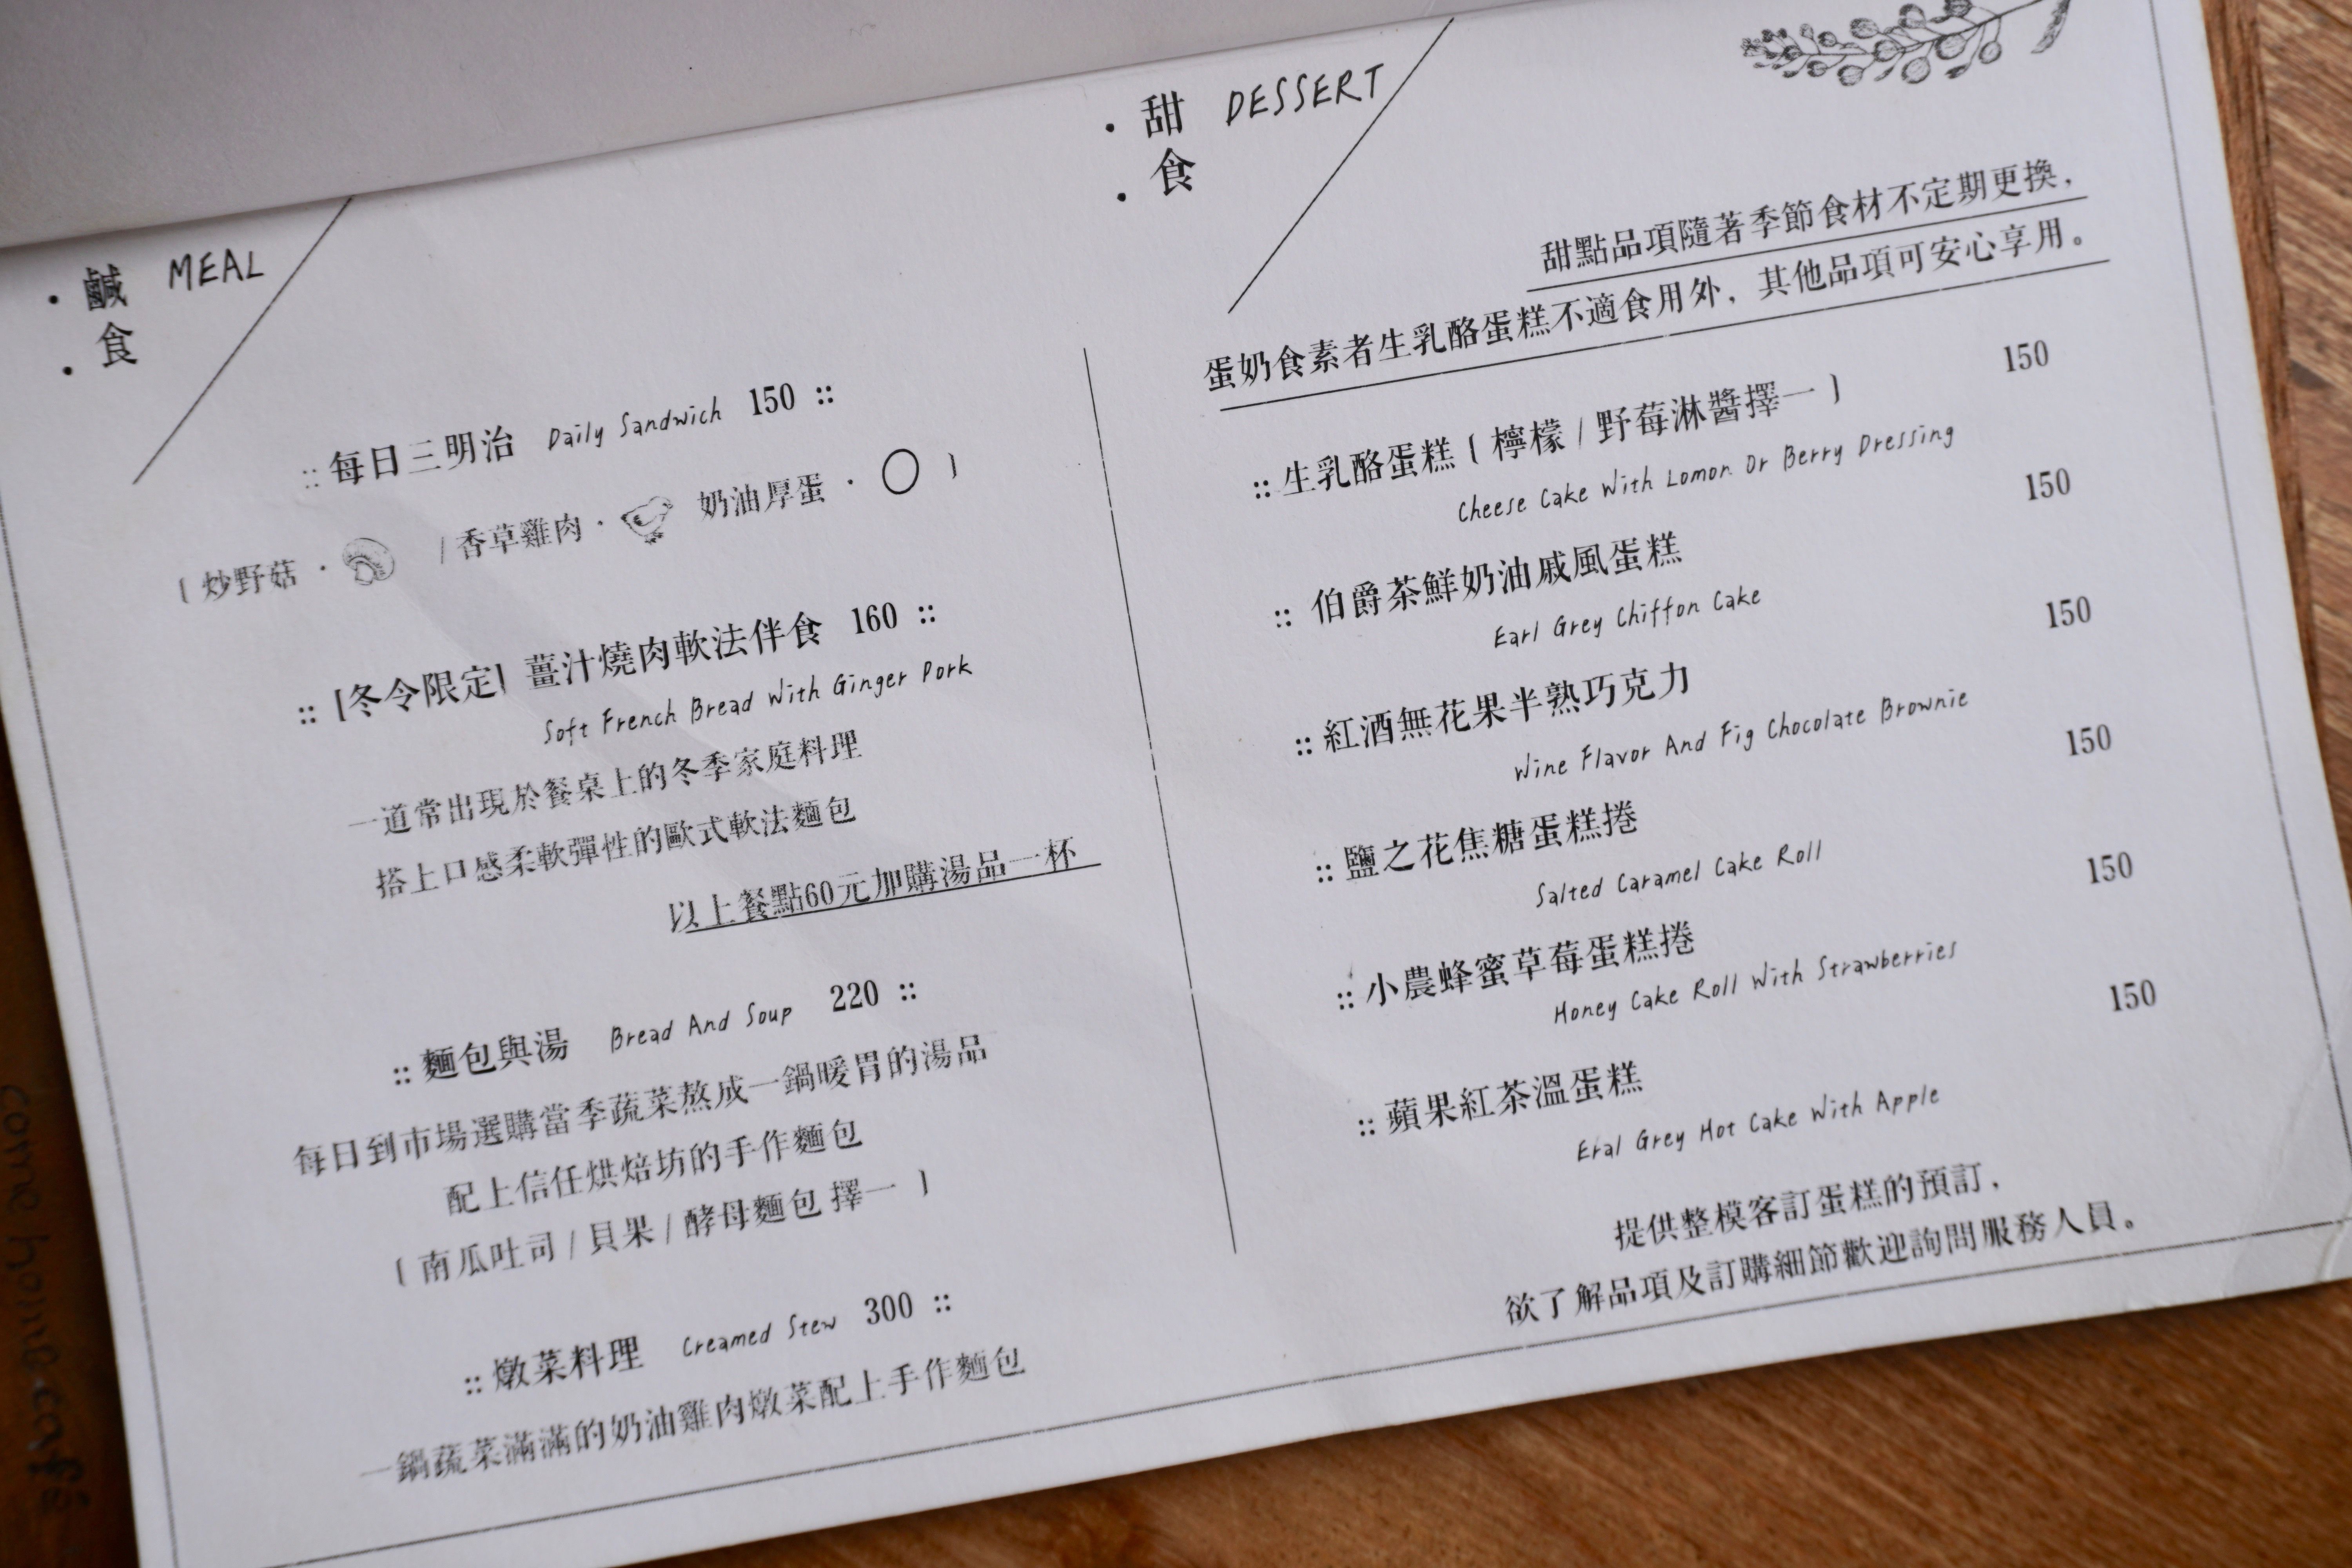 鹹食 MEAL
:: 每日三明治 Daily Sandwich 150 ::
〔 炒野菇 · / 香草雞肉 · 奶油厚蛋 · 〕
:: [冬令限定] 薑汁燒肉軟法伴食 160 ::
Soft French Bread With Ginger Pork
一道常出現於餐桌上的冬季家庭料理
搭上口感柔軟彈性的歐式軟法麵包
以上餐點60元加購湯品一杯
:: 麵包與湯 Bread And Soup 220 ::
每日到市場選購當季蔬菜熬成一鍋暖胃的湯品
配上信任烘焙坊的手作麵包
〔 南瓜吐司 / 貝果 / 酵母麵包 擇一 〕
:: 燉菜料理 Creamed Stew 300 ::
一鍋蔬菜滿滿的奶油雞肉燉菜配上手作麵包
甜食 DESSERT
甜點品項隨著季節食材不定期更換，
蛋奶食素者生乳酪蛋糕不適食用外，其他品項可安心享用。
:: 生乳酪蛋糕〔 檸檬 / 野莓淋醬擇一 〕 150
Cheese Cake With Lomon Or Berry Dressing
:: 伯爵茶鮮奶油戚風蛋糕 150
Earl Grey Chiffon Cake
:: 紅酒無花果半熟巧克力 150
Wine Flavor And Fig Chocolate Brownie
:: 鹽之花焦糖蛋糕捲 150
Salted Caramel Cake Roll
:: 小農蜂蜜草莓蛋糕捲 150
Honey Cake Roll With Strawberries
:: 蘋果紅茶溫蛋糕 150
Eral Grey Hot Cake With Apple
提供整模客訂蛋糕的預訂，
欲了解品項及訂購細節歡迎詢問服務人員。
come home café